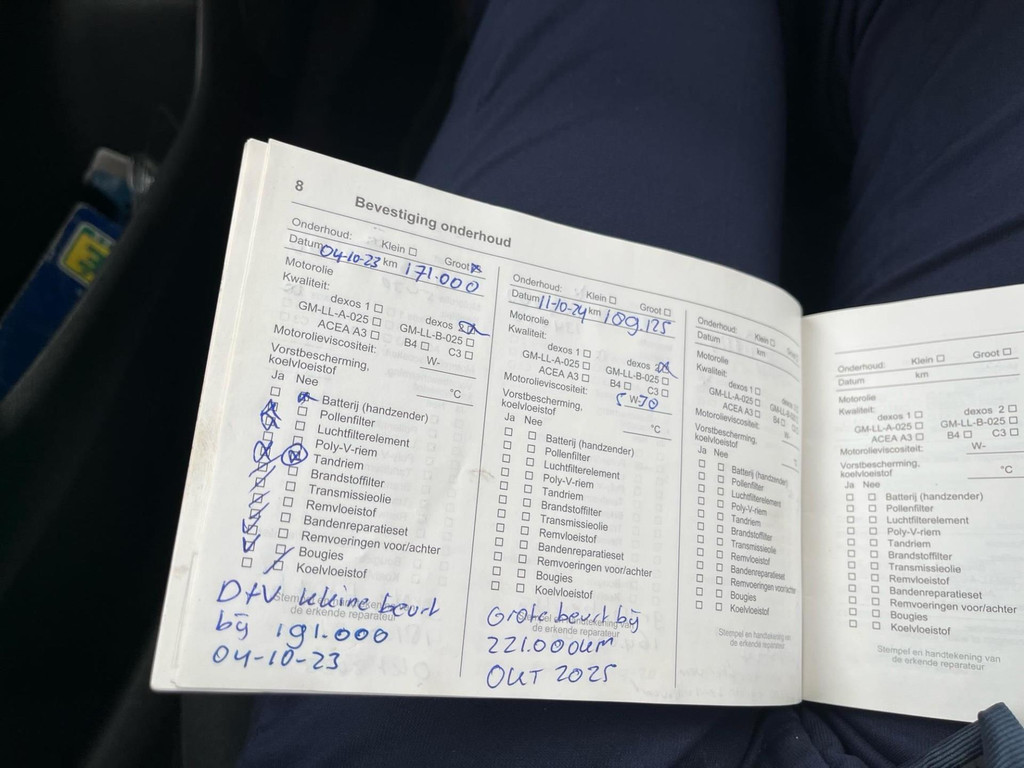 8
Bevestiging onderhoud
Onderhoud: Klein Groot
Datum 04-10-23 km 171.000
Motorolie
Kwaliteit:
dexos 1 dexos 2
GM-LL-A-025 GM-LL-B-025
ACEA A3 B4 C3
Motorolieviscositeit: W-
Vorstbescherming,
koelvloeistof °C
Ja Nee
Batterij (handzender)
Pollenfilter
Luchtfilterelement
Poly-V-riem
Tandriem
Brandstoffilter
Transmissieolie
Remvloeistof
Bandenreparatieset
Remvoeringen voor/achter
Bougies
Koelvloeistof
kleine beurt
bij 191.000
04-10-23
de erkende reparateur
Onderhoud: Klein Groot
Datum 11-10-24 km 109.125
Motorolie
Kwaliteit:
dexos 1 dexos 2
GM-LL-A-025 GM-LL-B-025
ACEA A3 B4 C3
Motorolieviscositeit: 5 W-30
Vorstbescherming,
koelvloeistof °C
Ja Nee
Batterij (handzender)
Pollenfilter
Luchtfilterelement
Poly-V-riem
Tandriem
Brandstoffilter
Transmissieolie
Remvloeistof
Bandenreparatieset
Remvoeringen voor/achter
Bougies
Koelvloeistof
Grote beurt bij
de erkende reparateur
221.000km
OKT 2025
Onderhoud: Klein
Datum km
Motorolie
Kwaliteit:
dexos 1
GM-LL-A-025
ACEA A3 B4
Motorolieviscositeit: W-
Vorstbescherming,
koelvloeistof °C
Ja Nee
Batterij (handzender)
Pollenfilter
Luchtfilterelement
Poly-V-riem
Tandriem
Brandstoffilter
Transmissieolie
Remvloeistof
Bandenreparatieset
Remvoeringen voor/achter
Bougies
Koelvloeistof
Stempel en handtekening
de erkende reparateur
Onderhoud: Klein Groot
Datum km
Motorolie
Kwaliteit:
dexos 1 dexos 2
GM-LL-A-025 GM-LL-B-025
ACEA A3 B4 C3
Motorolieviscositeit: W-
Vorstbescherming,
koelvloeistof °C
Ja Nee
Batterij (handzender)
Pollenfilter
Luchtfilterelement
Poly-V-riem
Tandriem
Brandstoffilter
Transmissieolie
Remvloeistof
Bandenreparatieset
Remvoeringen voor/achter
Bougies
Koelvloeistof
Stempel en handtekening van
de erkende reparateur